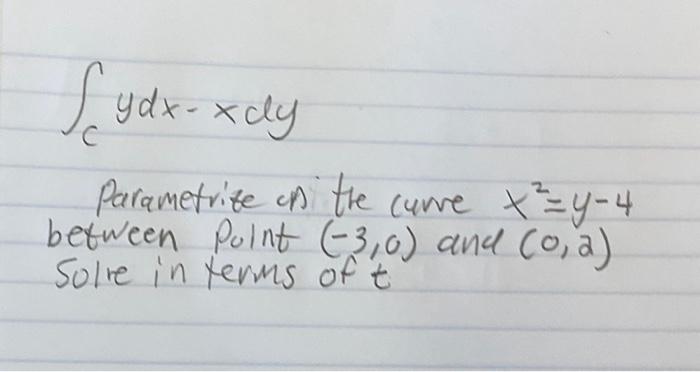 ∫_C ydx - xdy
Parametrize on the curve x²=y-4
between Point (-3,0) and (0,2)
Solve in terms of t